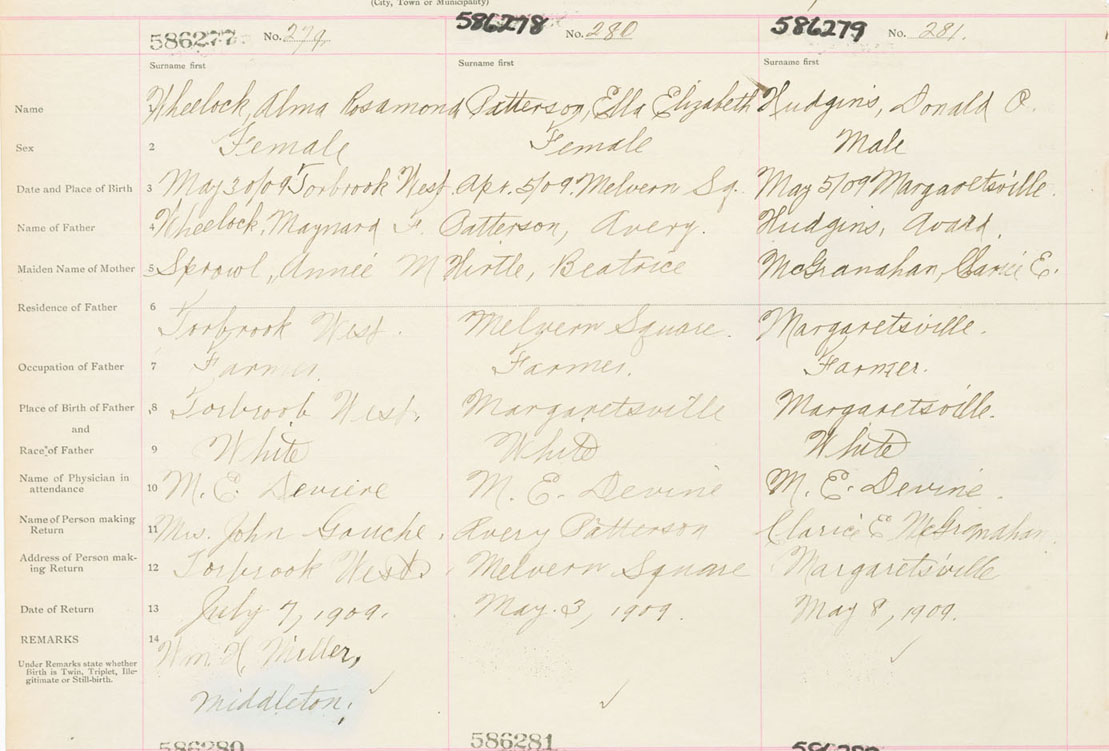 (City, Town or Municipality)
586277 No. 279. 586278 No. 280 586279 No. 281.
Surname first Surname first Surname first
Name 1 Wheelock, Alma Rosamond Patterson, Ella Elizabeth Hudgins, Donald O.
Sex 2 Female Female Male
Date and Place of Birth 3 May 30/09 Torbrook West Apr. 5/09. Melvern Sq. May 5/09 Margaretsville.
Name of Father 4 Wheelock, Maynard F. Patterson, Avery. Hudgins, Avard.
Maiden Name of Mother 5 Sprowl, Annie M Hirtle, Beatrice McGranahan, Claricè E.
Residence of Father 6 Torbrook West. Melvern Square. Margaretsville.
Occupation of Father 7 Farmer. Farmer. Farmer.
Place of Birth of Father 8 Torbrook West. Margaretsville Margaretsville.
and
Race of Father 9 White White White
Name of Physician in
attendance 10 M. E. Deviere M. E. Devine M. E. Devine.
Name of Person making
Return 11 Mrs. John Gouche. Avery Patterson Claricè E McGranahan
Address of Person mak-
ing Return 12 Torbrook West Melvern Square Margaretsville
Date of Return 13 July 7, 1909. May. 3, 1909. May 8, 1909.
REMARKS 14 Wm H. Miller,
Under Remarks state whether
Birth is Twin, Triplet, Ille-
gitimate or Still-birth.
Middleton.
586280 586281